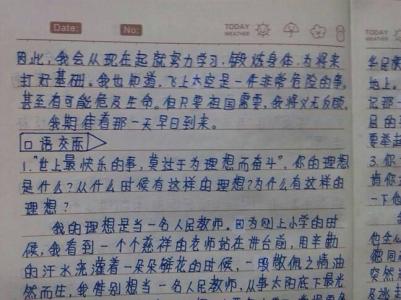 Date: No: TODAY WEATHER TODAY WEATHER
因此，我会从现在起就努力学习，锻炼身体，为将来
打好基础。我也知道，飞上太空是一件非常危险的事，
甚至有可能危及生命。但只要祖国需要，我将义无反顾。
我期待着那一天早日到来。
口语交际
1."世上最快乐的事，莫过于为理想而奋斗"。你的理想
是什么？从什么时候有这样的理想？为什么有这样的
理想？
我的理想是当一名人民教师。因为刚上小学的时
候，我看到一个个慈祥的老师站在讲台前，用辛勤
的汗水浇灌着一朵朵鲜花的时候，一股敬佩之情油
然而生，我特别想当一名人民教师，从事太阳底下最光
地上。
记那一
3.你
一下